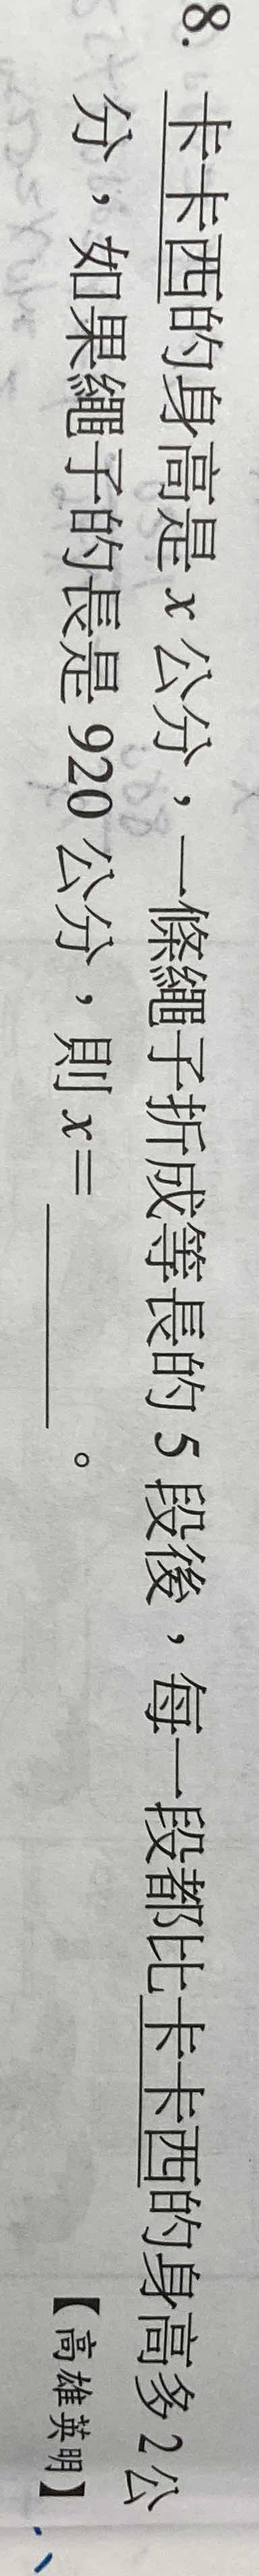 8. 卡卡西的身高是 x 公分，一條繩子折成等長的 5 段後，每一段都比卡卡西的身高多 2 公
分，如果繩子的長是 920 公分，則 x＝＿＿＿＿。
【高雄英明】